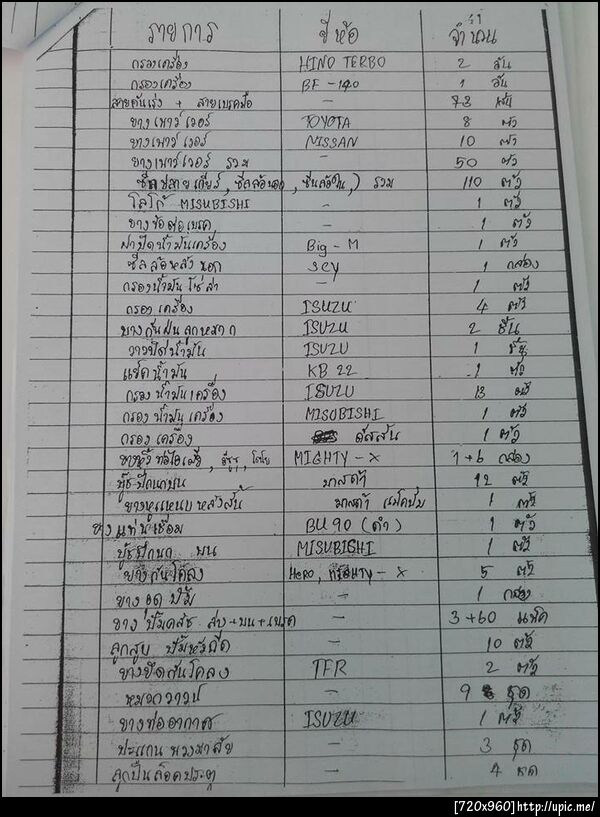 รายการ ยี่ห้อ จำนวน
กรองเครื่อง HINO TERBO 2 อัน
กรองเครื่อง BF-140 1 อัน
สายคันเร่ง + สายเบรคมือ - 73 เส้น
ยางเพาเวอร์ TOYOTA 8 ตัว
ยางเพาเวอร์ NISSAN 10 ตัว
ยางเพาเวอร์ รวม - 50 ตัว
ซีลปลายเกียร์, ซีลล้อนอก, ซีลล้อใน, รวม 110 ตัว
โลโก้ MISUBISHI - 1 ตัว
ยางข้อต่อเบรค - 1 ตัว
ฝาปิดน้ำมันเครื่อง Big-M 1 ตัว
ซีลล้อหลังนอก 1 กล่อง
กรองน้ำมันโซล่า - 1 ตัว
กรองเครื่อง ISUZU 4 ตัว
ยางกันฝุ่นลูกหมาก ISUZU 2 ชิ้น
วาวปิดน้ำมัน ISUZU 1
แช็คน้ำมัน KB 22 1 ตัว
กรองน้ำมันเครื่อง ISUZU 13 ตัว
กรองน้ำมันเครื่อง MISOBISHI 1 ตัว
กรองเครื่อง ดัสสัน 1 ตัว
MIGHTY-X 1+6 กล่อง
บู๊ชปีกนกบน มาสด้า 12 ตัว
ยางหูแหนบหลังสั้น มาสด้า 1 ตัว
ยางแท่นเชื่อม BU 90 (ดำ) 1 ตัว
บู๊ชปีกนก บน MISUBISHI 1 ตัว
ยางกันโคลง HERO, MIGHTY-X 5 ตัว
ยางอุดปั๊ม - 1 กล่อง
ยางปั๊มคลัช ล่าง+บน+เบรค - 3+60 แพ็ค
ลูกสูบ ปั๊มหัวฉีด - 10 ตัว
ยางยึดกันโคลง TFR 2 ตัว
หมวกวาวน์ - 9 ชุด
ยางท่ออากาศ ISUZU 1 ตัว
ปะแกน พวงมาลัย - 3 ชุด
ลูกปืนล็อคประตู - 4 ชุด
[720x960]http://upic.me/